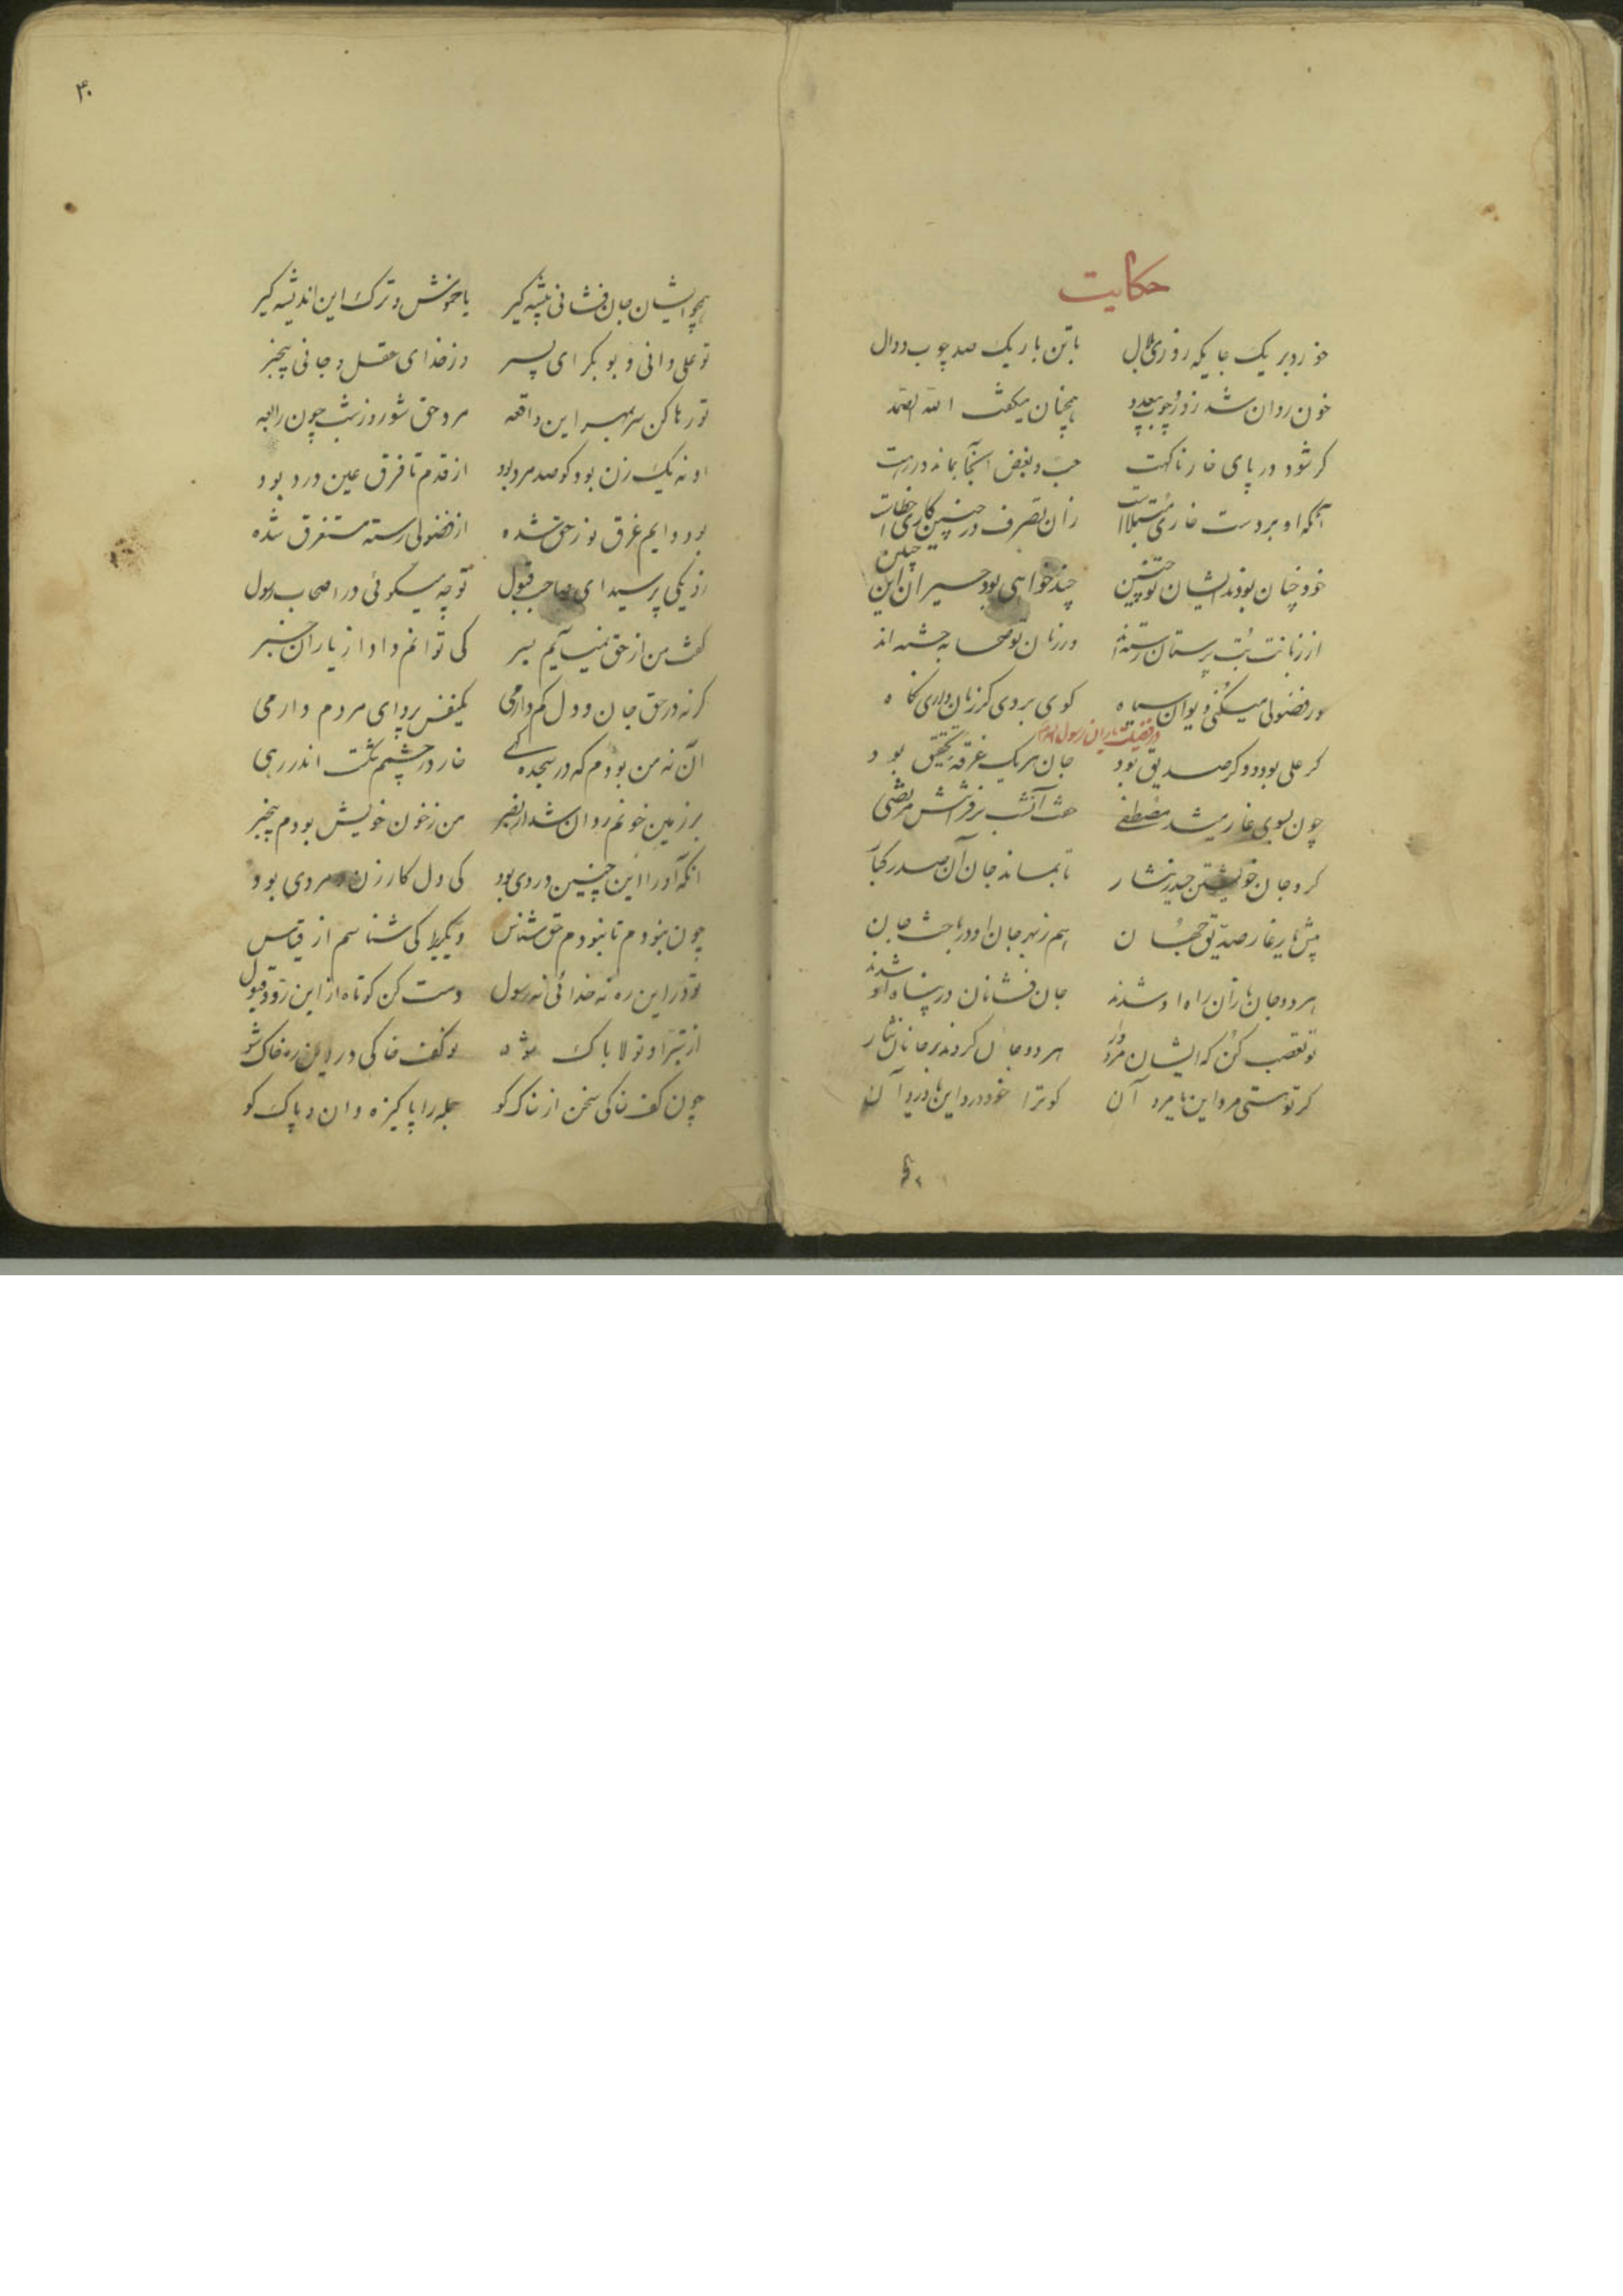 حکایت
خورد بر یک جایکه روزی بلال با تن باریک صد چوب دوال
خون روان شد زو ز چوب بیعدد همچنان میگفت الله الصمد
کر شود در پای خار ناکهت حب و بغض اینجا بماند در رهت
آنکه او بر دست خاری مبتلاست زان تصرف در چنین کاری خطاست
خود چنان بودند ایشان تو چنین چند خواهی بود حیران این چنین
از زبانت بت پرستان رسته اند وز زبان تو صحابه خسته اند
ور فضولی میکنی دیوان سیاه کوی بردی کر زبان داری نکاه
در فضیلت یاران رسول
کر علی بود و کر صدیق بود جان هر یک غرقه تحقیق بود
چون بسوی غار میشد مصطفی خفت آنشب بر فراشش مرتضی
کرد جان خویشتن حیدر نثار تا بماند جان آن صدر کبار
پیش یار غار صدیق جهان هم ز بهر جان او درباخت جان
هر دو جان بازان راه او شدند جان فشانان در پناه او شدند
تو تعصب کن که ایشان مردوار هر دو جان کردند بر جانان نثار
کر تو هستی مرد این یا مرد آن کو ترا خود درد این یا درد آن
۴۰
همچو ایشان جان فشانی پیشه کیر یا خموش و ترک این اندیشه کیر
تو علی دانی و بوبکر ای پسر وز خدای عقل و جانی بیخبر
تو رها کن سر بمهر این واقعه مرد حق شو روز و شب چون رابعه
او نه یک زن بود کو صد مرد بود از قدم تا فرق عین درد بود
بود دایم غرق نور حق شده از فضولی رسته مستغرق شده
زو یکی پرسید ای صاحب قبول تو چه میگوئی در اصحاب رسول
گفت من از حق نمیآیم بسر کی توانم داد از یاران خبر
کر نه در حق جان و دل کم دارمی یکنفس پروای مردم دارمی
آن نه من بودم که در سجده گهی خار در چشمم شکست اندر رهی
بر زمین خونم روان شد از بصر من ز خون خویش بودم بیخبر
آنکه او را این چنین دردی بود کی دل کار زن و مردی بود
چون نبودم تا نبودم حق شناس دیگری کی شناسم از قیاس
تو در این ره نه خدائی نه رسول دست کن کوتاه از این رد و قبول
از تبرا و تولا پاک شو تو کف خاکی در این ره خاک شو
چون کف خاکی سخن از خاک کو جمله را پاکیزه دان و پاک کو